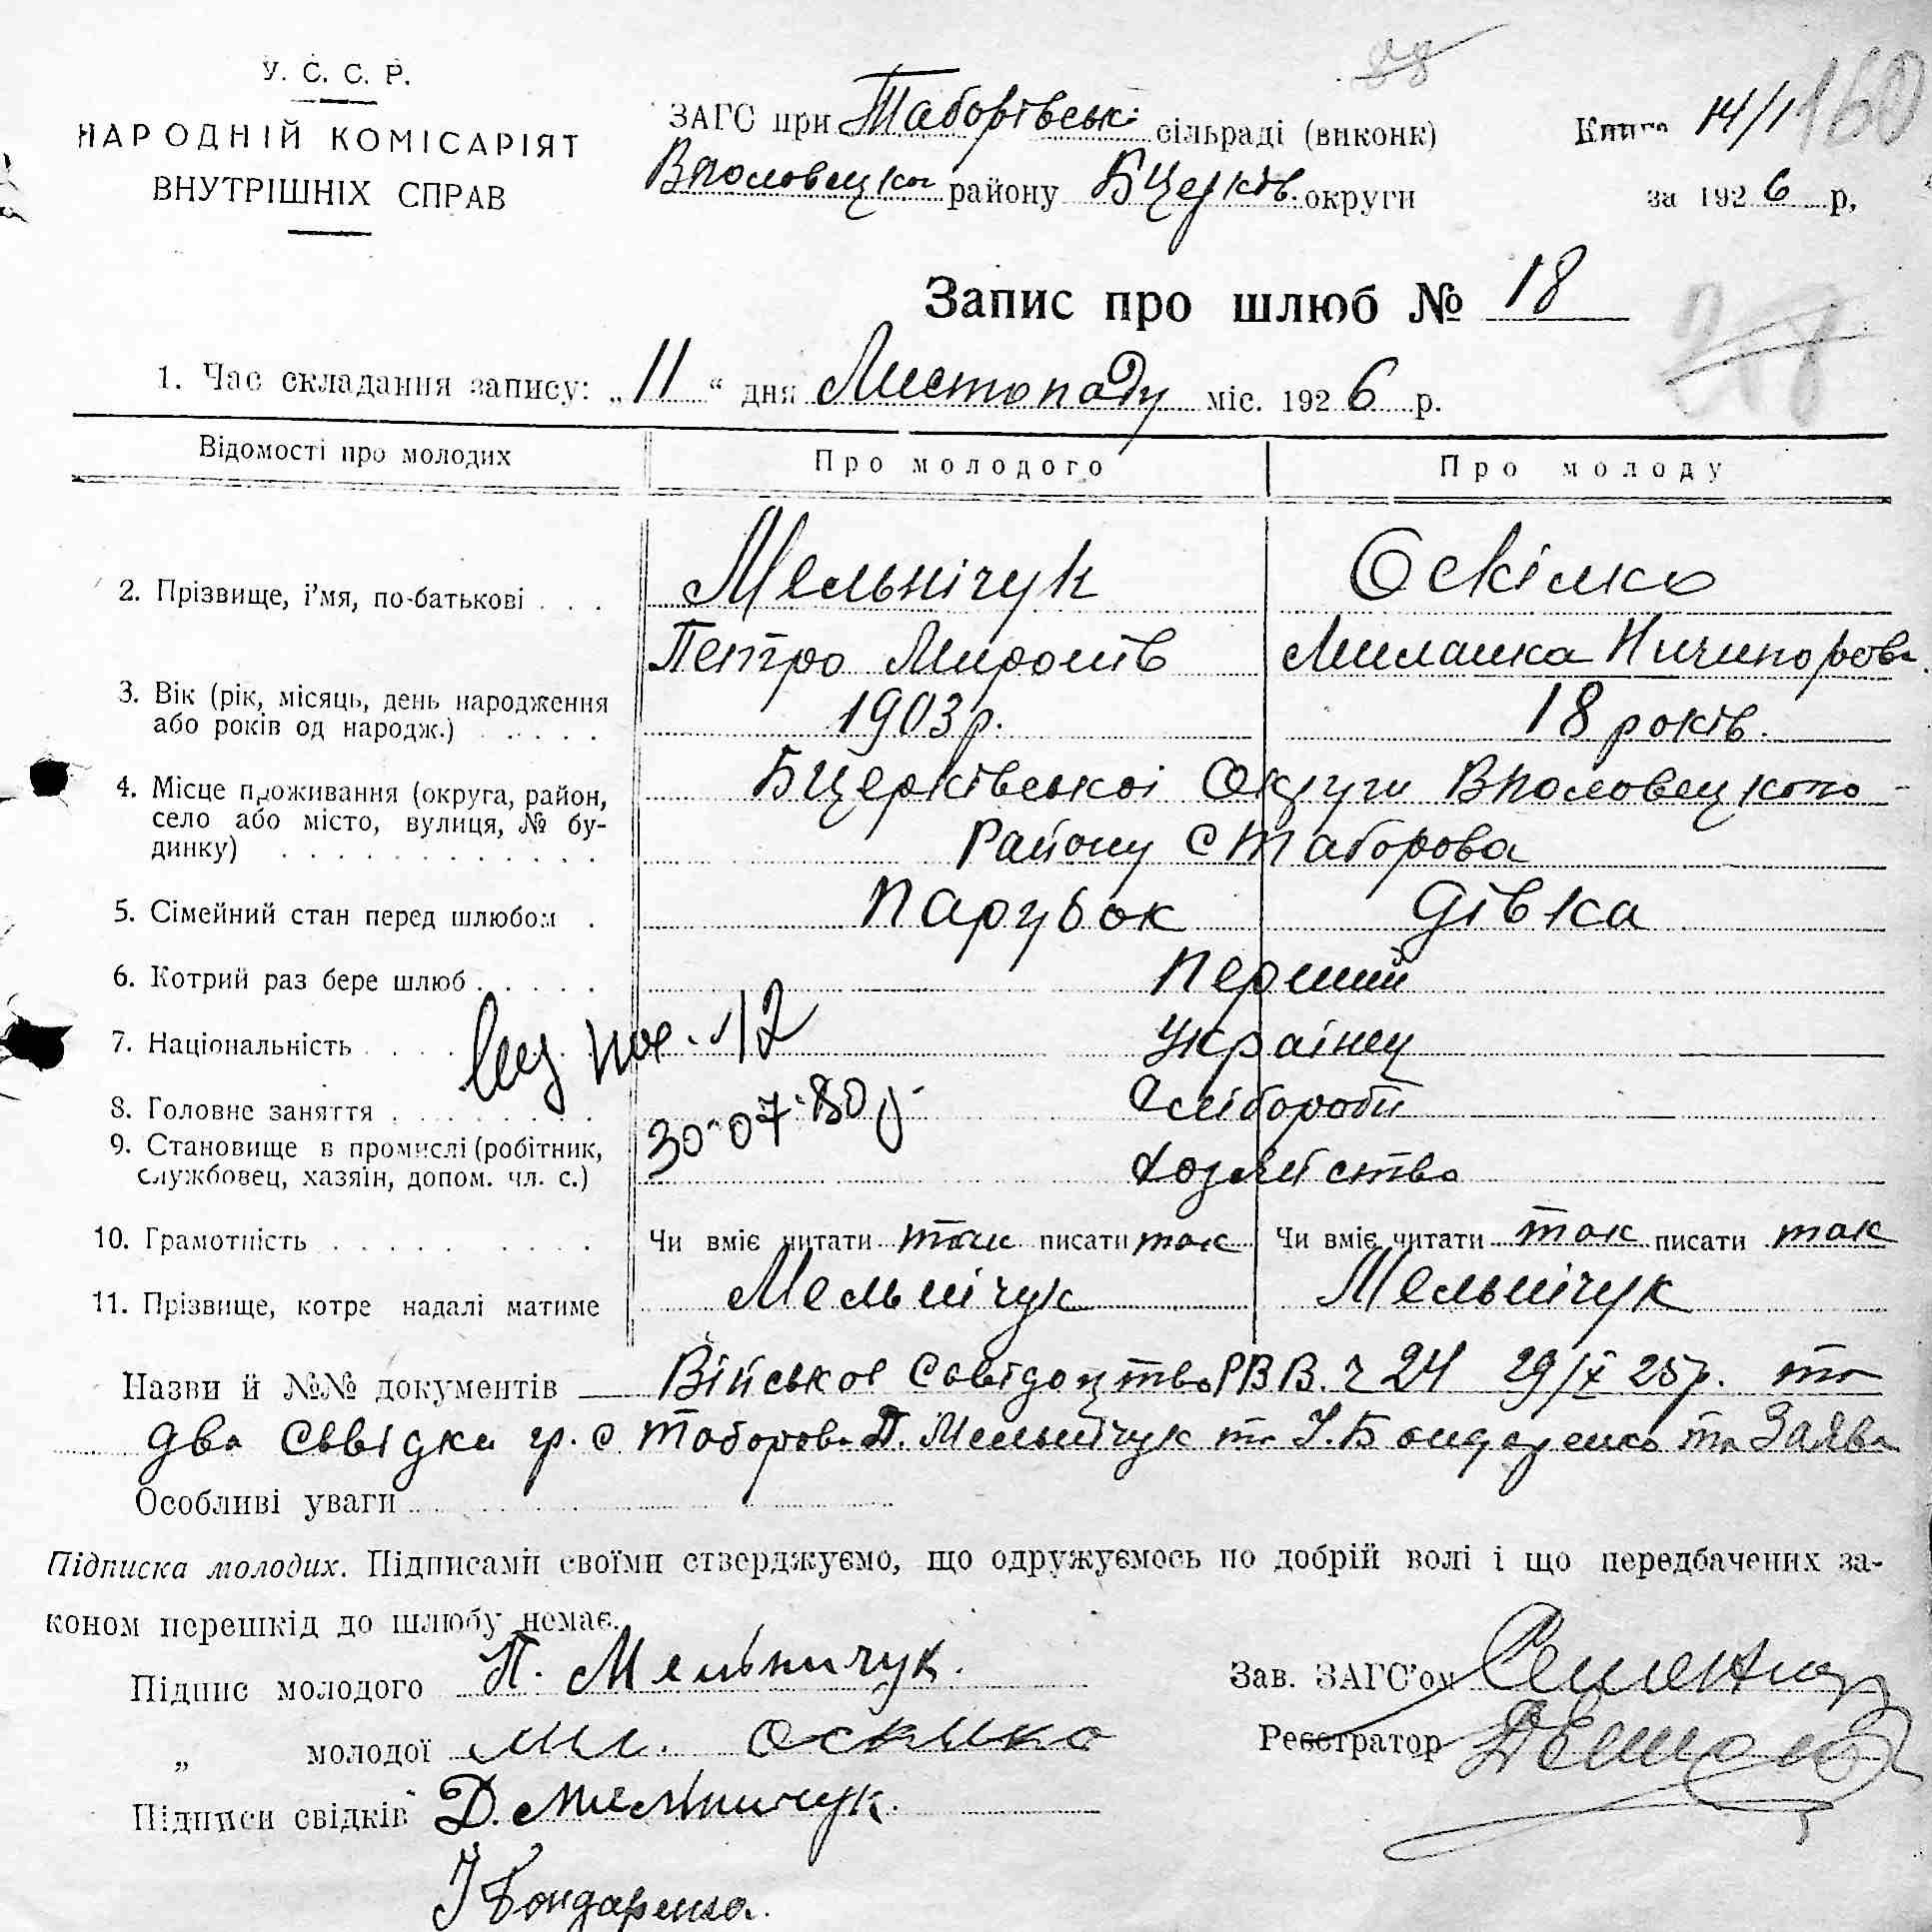 У. С. С. Р.
НАРОДНІЙ КОМІСАРІЯТ
ВНУТРІШНІХ СПРАВ
ЗАГС при Таборівські сільраді (виконк)
Вполовецког району БЦерків. округи
Книга 14/1 160
за 1926 р,
Запис про шлюб № 18
1. Час складання запису: „11“ дня Листопаду міс. 1926 р.
Відомості про молодих
Про молодого
Про молоду
2. Прізвище, і'мя, по-батькові . . .
Мельнічук
Оскілко
Петро Миронів
Милашка Ничипорова
3. Вік (рік, місяць, день народження
або років од народж.) . . . . .
1903 р.
18 років.
4. Місце проживання (округа, район,
село або місто, вулиця, № бу-
динку) . . . . . . . . . . . .
БЦерківськоі Округи Вполовецкого
Району с Таборова
5. Сімейний стан перед шлюбом .
Парубок
дівка
6. Котрий раз бере шлюб . . . . .
Перший
7. Національність . . . .
Украінец
8. Головне заняття . . . . . . . .
Хлібороби
30-07-80
9. Становище в промислі (робітник,
службовец, хазяїн, допом. чл. с.)
хозяйство
10. Грамотність . . . . . . . . .
Чи вміє читати так писати так
Чи вміє читати так писати так
11. Прізвище, котре надалі матиме
Мельнічук
Мельнічук
Назви й №№ документів Військое Свідоцтво РВВ. ч 24 29/X 25р. та
два Сввідки гр. с Таборова Д. Мельнічук та І. Бондаренко та Заява
Особливі уваги
Підписка молодих. Підписами своїми стверджуємо, що одружуємось по добрій волі і що передбачених за-
коном перешкід до шлюбу немає.
Підпис молодого П. Мельничук.
„ молодої Мил. Оскилко
Підписи свідків Д. Мельничук.
І Бондаренко.
Зав. ЗАГС'ом
Реєстратор